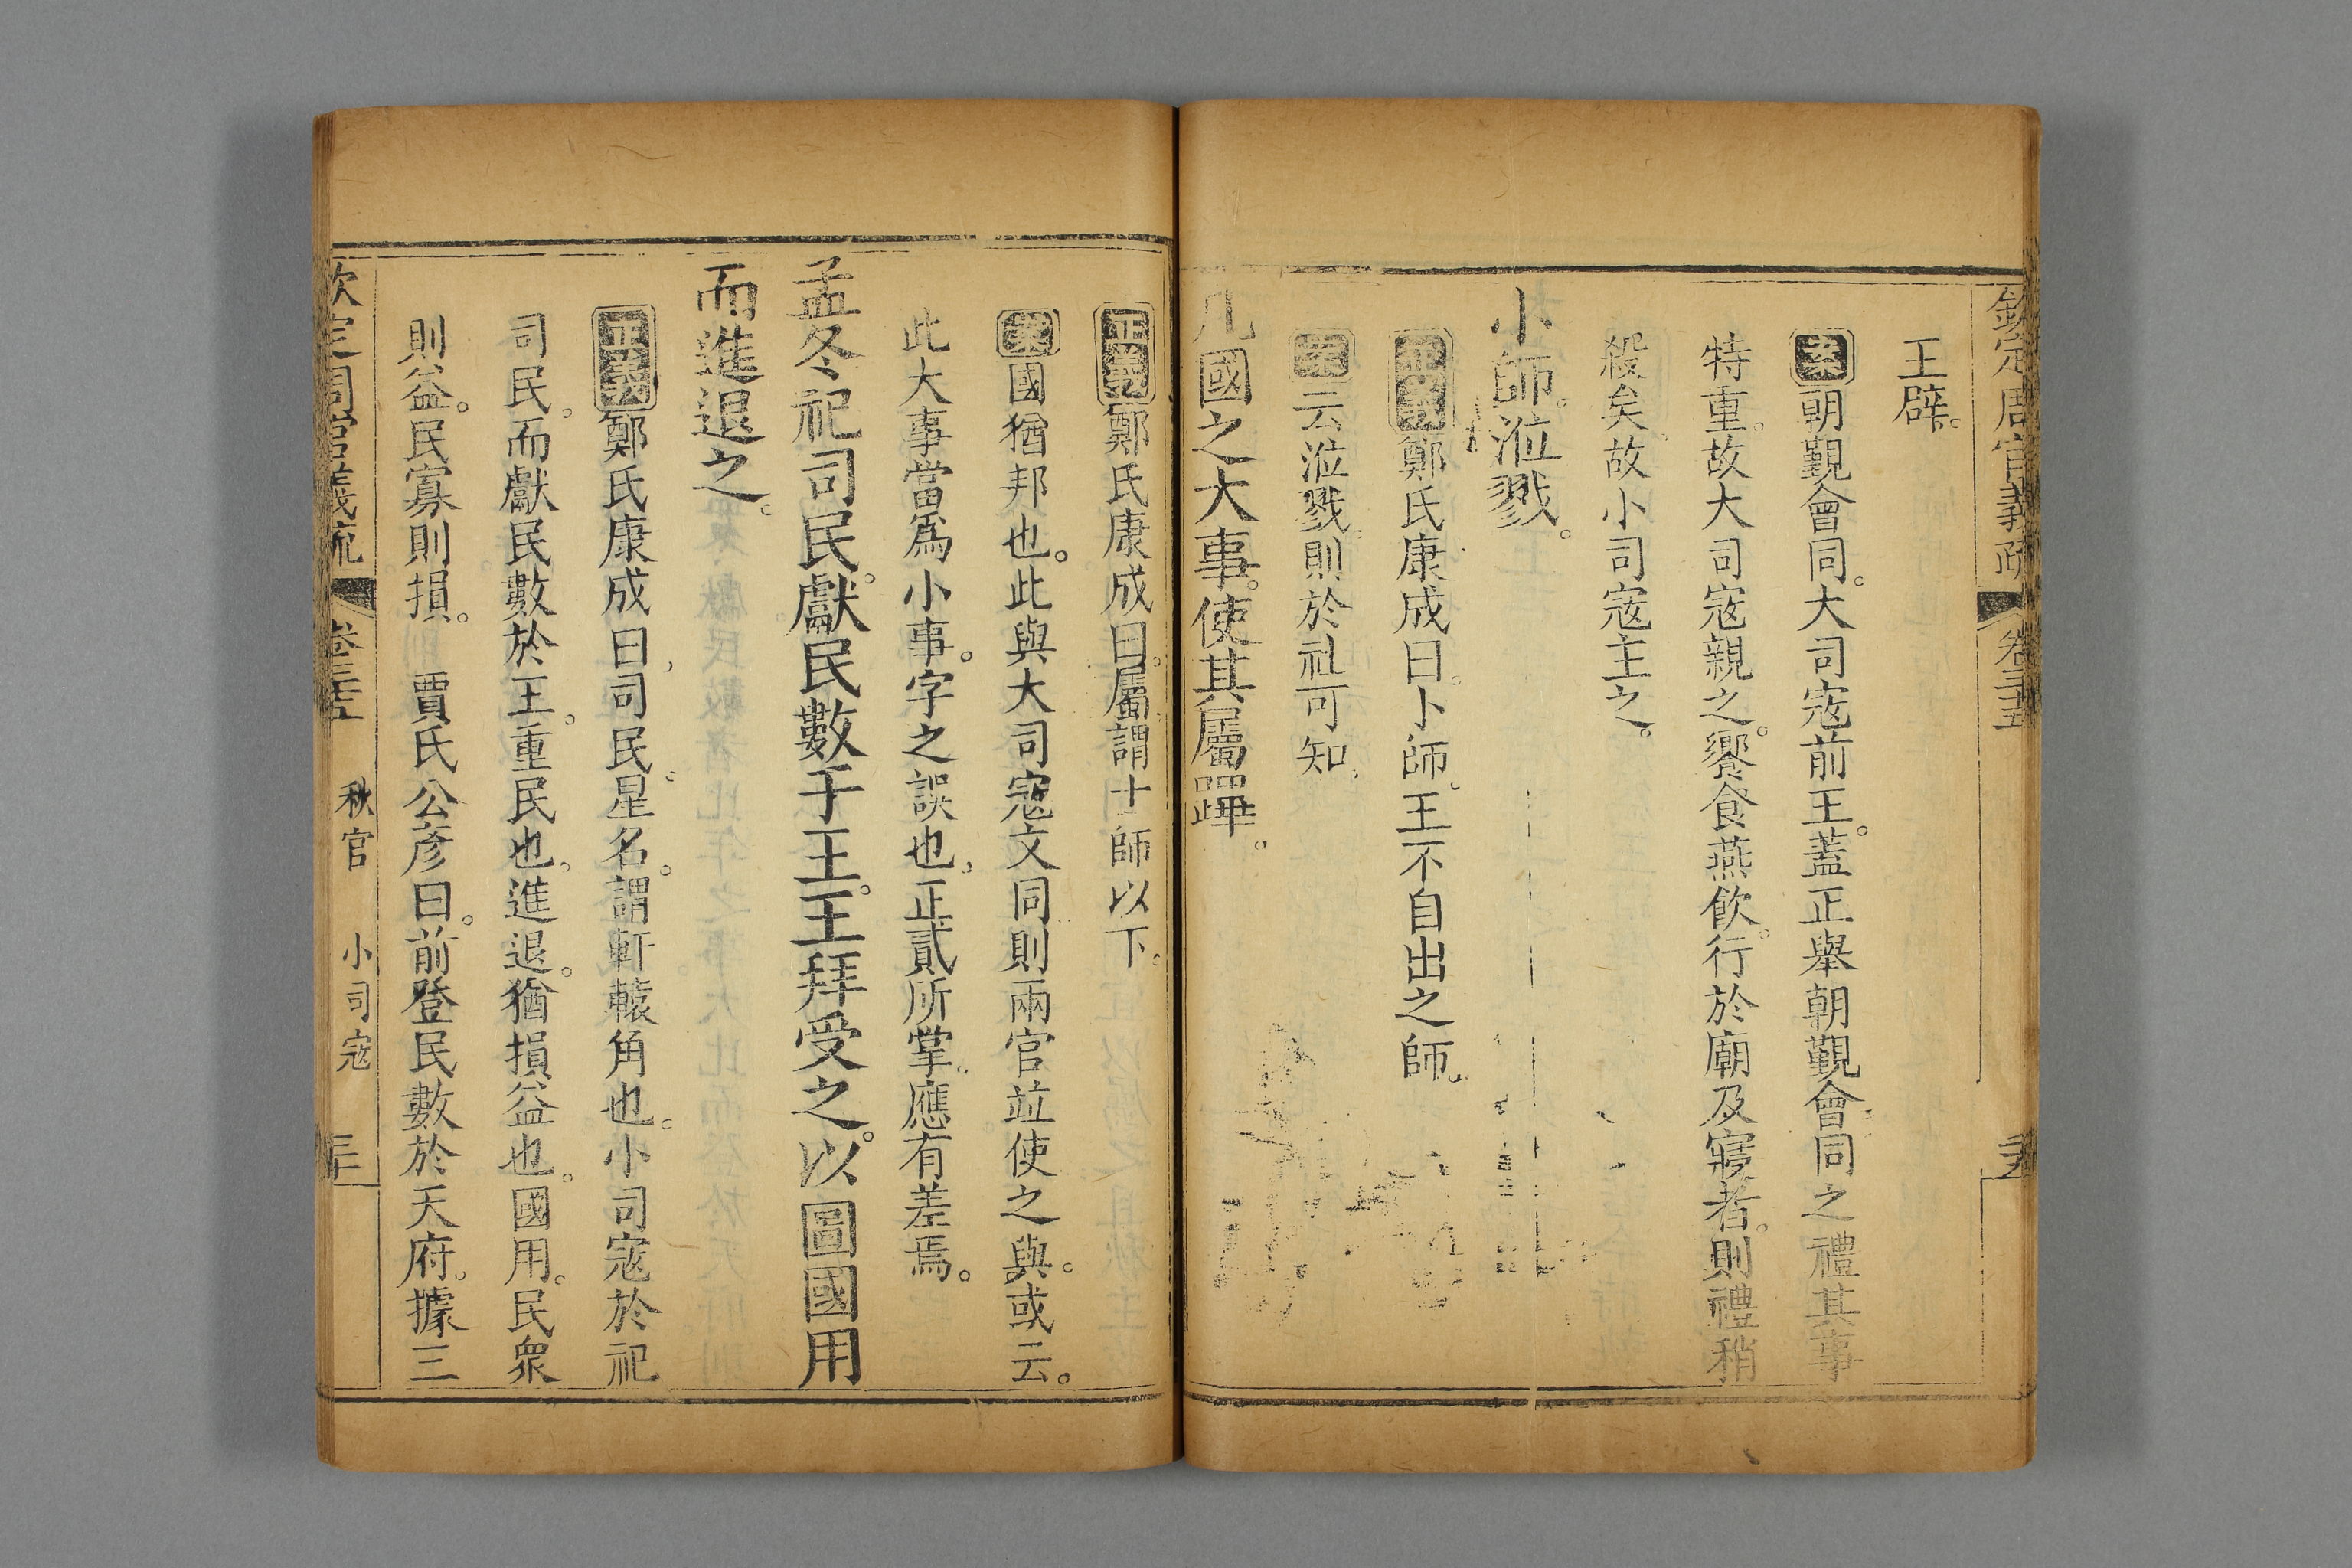 欽定周官義疏 卷三十五
王辟。
案朝覲會同。大司寇前王。蓋正舉朝覲會同之禮其事
特重。故大司寇親之。饗食燕飲。行於廟及寢者。則禮稍
殺矣。故小司寇主之。
小師。涖戮。
正義鄭氏康成曰。小師。王不自出之師。
案云涖戮。則於社可知。
凡國之大事。使其屬蹕。
正義鄭氏康成曰。屬。謂士師以下。
案國猶邦也。此與大司寇文同。則兩官竝使之與。或云。
此大事當爲小事。字之誤也。正貳所掌。應有差焉。
孟冬祀司民。獻民數于王。王拜受之。以圖國用
而進退之。
正義鄭氏康成曰。司民。星名。謂軒轅角也。小司寇於祀
司民。而獻民數於王。重民也。進退。猶損益也。國用。民衆
則益。民寡則損。 賈氏公彥曰。前登民數於天府。據三
欽定周官義疏 卷三十五 秋官 小司寇